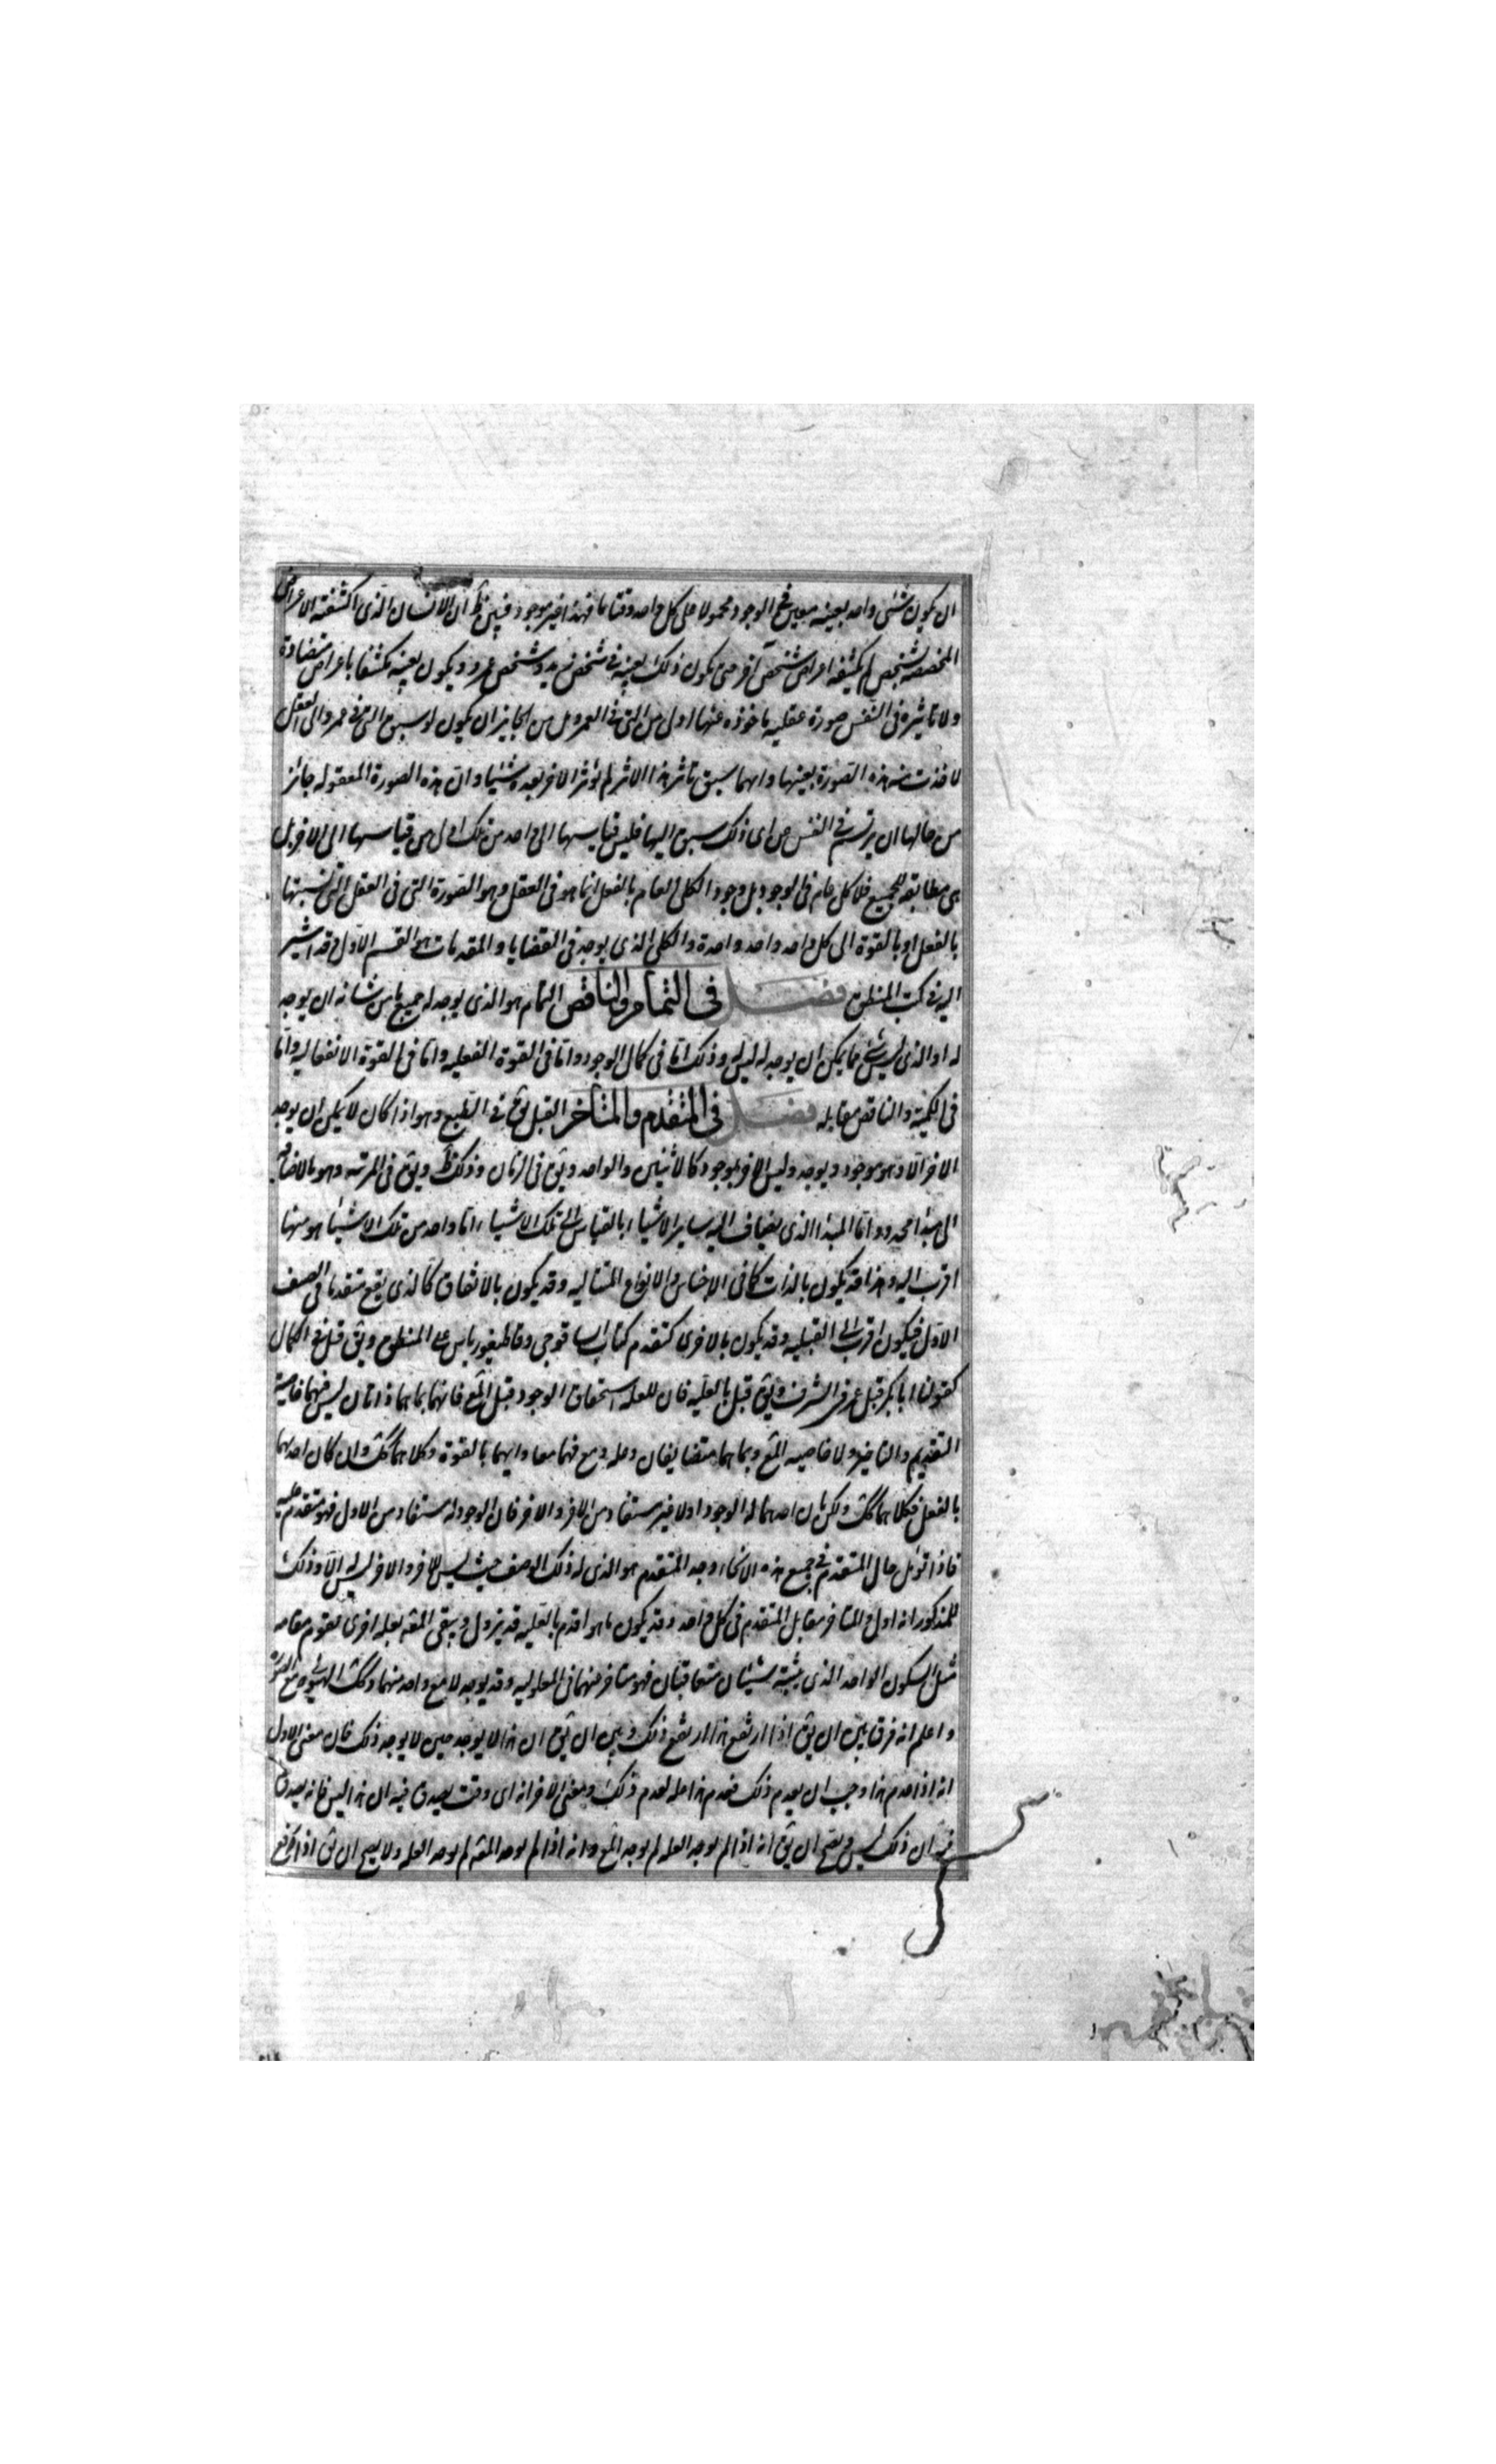 ان يكون شئ واحد بعينه معين في الوجود محمولا على كل واحد وقتا ما فهذا غير موجود فبين ظ ان الانسان الذى اكتنفته الاعراض
المخصصه بشخص لم يكتنفه اعراض شخص آخر حتى يكون ذلك بعينه فى شخص زيد وشخص عمرو ويكون بعينه مكتنفا باعراض متضادة
ولا تاثيره فى النفس صورة عقليه ماخوذه عنها اولى من التى فى العمرو بل من الجايز ان يكون لو سبق التى فى عمرو الى العقل
لاخذت منه هذه الصورة بعينها وايهما سبق تاثر هذا الاثر لم يؤثر الاخر بعده شيئا وان هذه الصورة المعقوله جائز
من حالها ان يرتسم فى النفس من اى ذلك سبق اليها فليس قياسها الى واحد من تلك اولى من قياسها الى الاخر بل
هى مطابقه للجميع فلا كلى عام فى الوجود بل وجود الكلى العام بالفعل انما هو فى العقل وهو الصورة التى فى العقل التى نسبتها
بالفعل او بالقوة الى كل واحد واحد واحدة والكلى الذى يوجد فى القضايا والمقدمات هو القسم الاول وقد اشير
اليه فى كتب المنطق فصل فى التمام والناقص التام هو الذى يوجد له جميع ما من شانه ان يوجد
له او الذى ليس شئ مما يمكن ان يوجد له ليس له وذلك اما فى كمال الوجود واما فى القوة الفعليه واما فى القوة الانفعاليه واما
فى الكمية والناقص مقابله فصل فى المتقدم والمتاخر القبل يق فى الطبع وهو اذا كان لا يمكن ان يوجد
الاخر الا وهو موجود ويوجد وليس الاخر بموجود كالاثنين والواحد ويق فى الزمان وذلك ظ ويق فى المرتبه وهو بالاضافه
الى مبدا محدود اما المبدا الذى يضاف اليه ساير الاشياء بالقياس الى تلك الاشياء اما واحد من تلك الاشياء هو منها
اقرب اليه وهذا قد يكون بالذات كما فى الاجناس والانواع المتتاليه وقد يكون بالاتفاق كالذى يقع متقدما فى الصف
الاول فيكون اقرب الى القبليه وقد يكون بالاخرى كتقدم كتاب ايساقوجى وقاطيغورياس على المنطق ويق قبل فى الكمال
كقولنا ابا بكر قبل عمر فى الشرف ويق قبل بالعليه فان للعله استحقاق الوجود قبل المع فانهما بما هما ذاتان ليس فيهما خاصية
التقديم والتاخير ولا خاصيه المع وبما هما متضايفان وعله ومع فهما معا وايهما بالقوة فكلاهما كك وان كان احدهما
بالفعل فكلاهما كك ولكن بان احدهما له الوجود اولا غير مستفاد من الاخر والاخر فان الوجود له مستفاد من الاول فهو متقدم عليه
فاذا تؤمل حال المتقدم فى جميع هذه الانحاء وجد المتقدم هو الذى له ذلك الوصف حيث ليس للاخر والاخر ليس له الا وذلك
للمذكور انه اول والمتاخر مقابل المتقدم فى كل واحد وقد يكون ما هو اقدم بالعليه قد يزول ويبقى المع بعله اخرى يقوم مقامه
مثل السكون الواحد الذى يثبته شيئان متعاقبان فهو متاخر منهما فى المعلوليه وقد يوجد لا مع واحد منهما وكك الهيولى مع الصورة
واعلم انه فرق بين ان يق اذا ارتفع هذا ارتفع ذلك وبين ان يق ان هذا لا يوجد حين لا يوجد ذلك فان معنى الاول
انه اذا عدم هذا وجب ان يعدم ذلك فعدم هذا عله لعدم ذلك ومعنى الاخر انه اى وقت يصدق فيه ان هذا ليس فانه يصدق
فيه ان ذلك ليس ويصح ان يق انه اذا لم يوجد العله لم يوجد المع وانه اذا لم يوجد المع لم يوجد العله ولا يصح ان يق اذا ارتفع